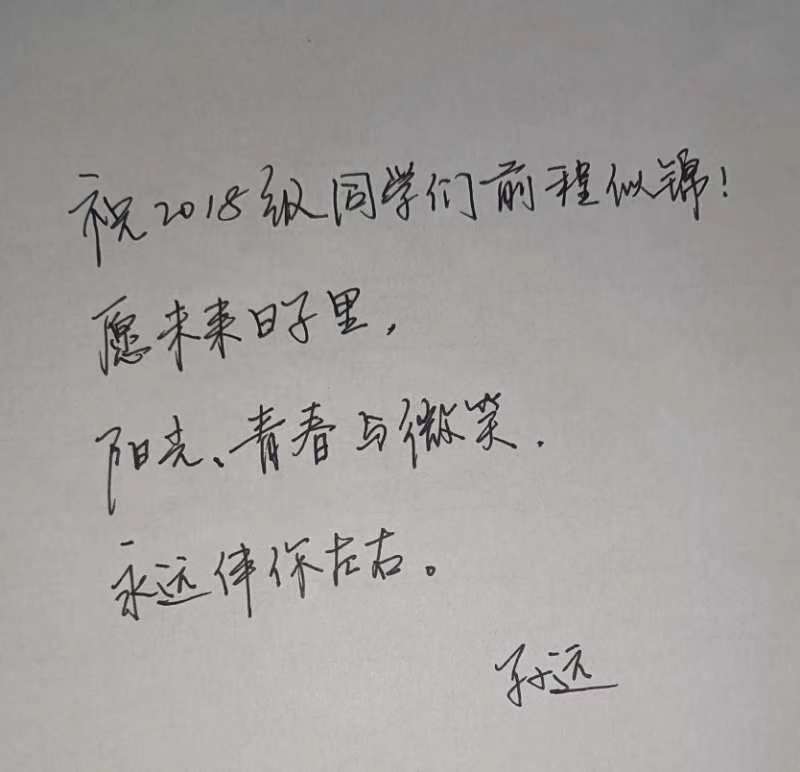 祝2018级同学们前程似锦！
愿未来日子里，
阳光、青春与微笑．
永远伴你左右。
孙远